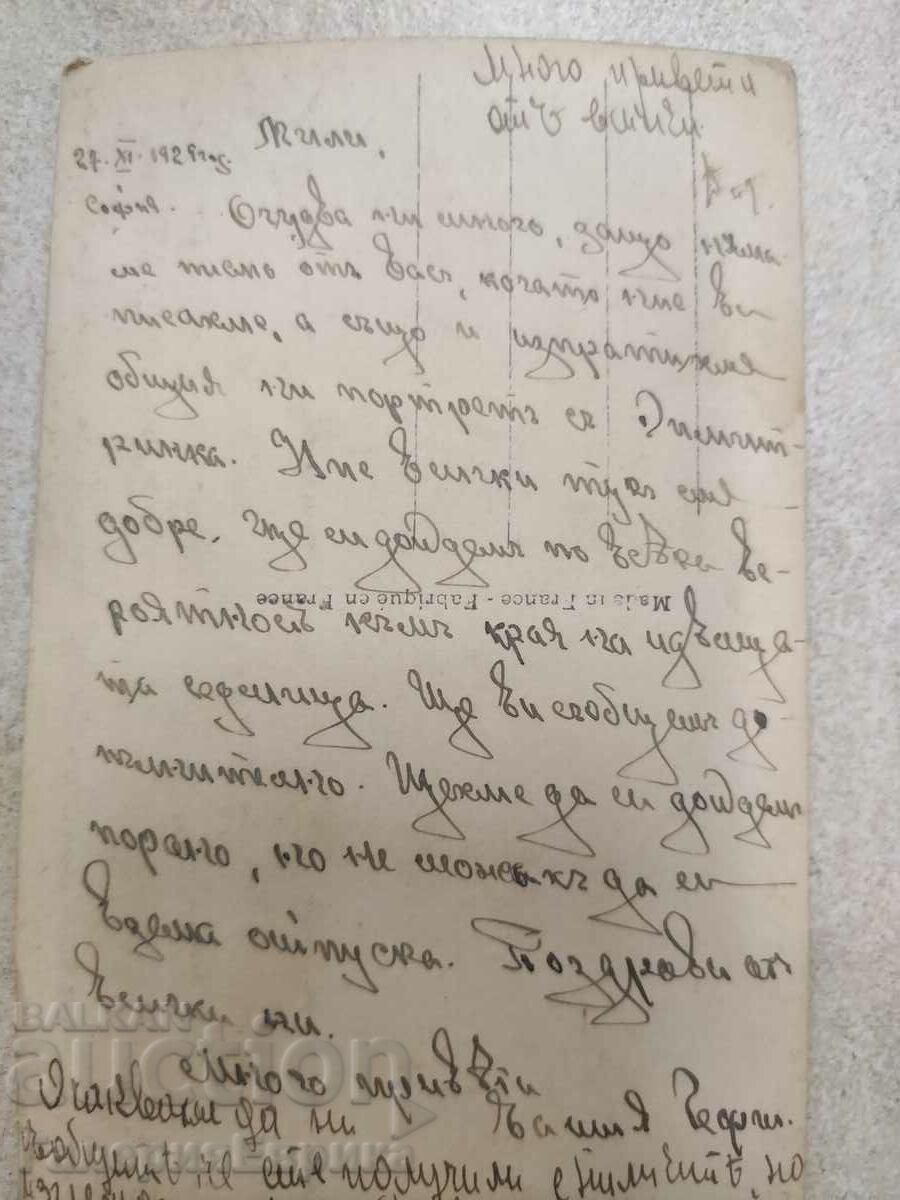 Много привети
отъ всички.
27. XI. 192 год.
София.
Мили,
Очудва ни много, защо няма-
ме писмо отъ Васъ, когато ние Ви
писахме, а също и изпратихме
общия ни портретъ съ Димит-
ринка. Ние всички тукъ сме
добре. Ще си дойдемъ по всѣка вѣ-
роятность къмъ края на идваща-
та седмица. Ще Ви съобщимъ до-
пълнително. Щехме да си дойдемъ
порано, но не можахъ да си
взема отпуска. Поздрави отъ
всички ни.
Много привѣти
Вашия Георги.
Очакваме да ни
съобщите че сте получили снимките, но
Made in France - Fabriqué en France
BALKAN
auction